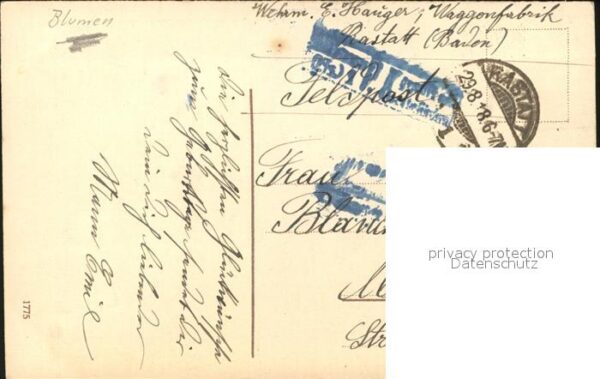 Blumen
Wehrm. E. Hauger, Waggonfabrik
Rastatt (Baden)
Feldpost
RASTATT
29.8.18.6-7N
Frau
Die herzlichsten Glückwünsche
zum Geburtstage sendet Dir
Dein dich liebender
Mann Emil
Str
1775
privacy protection
Datenschutz